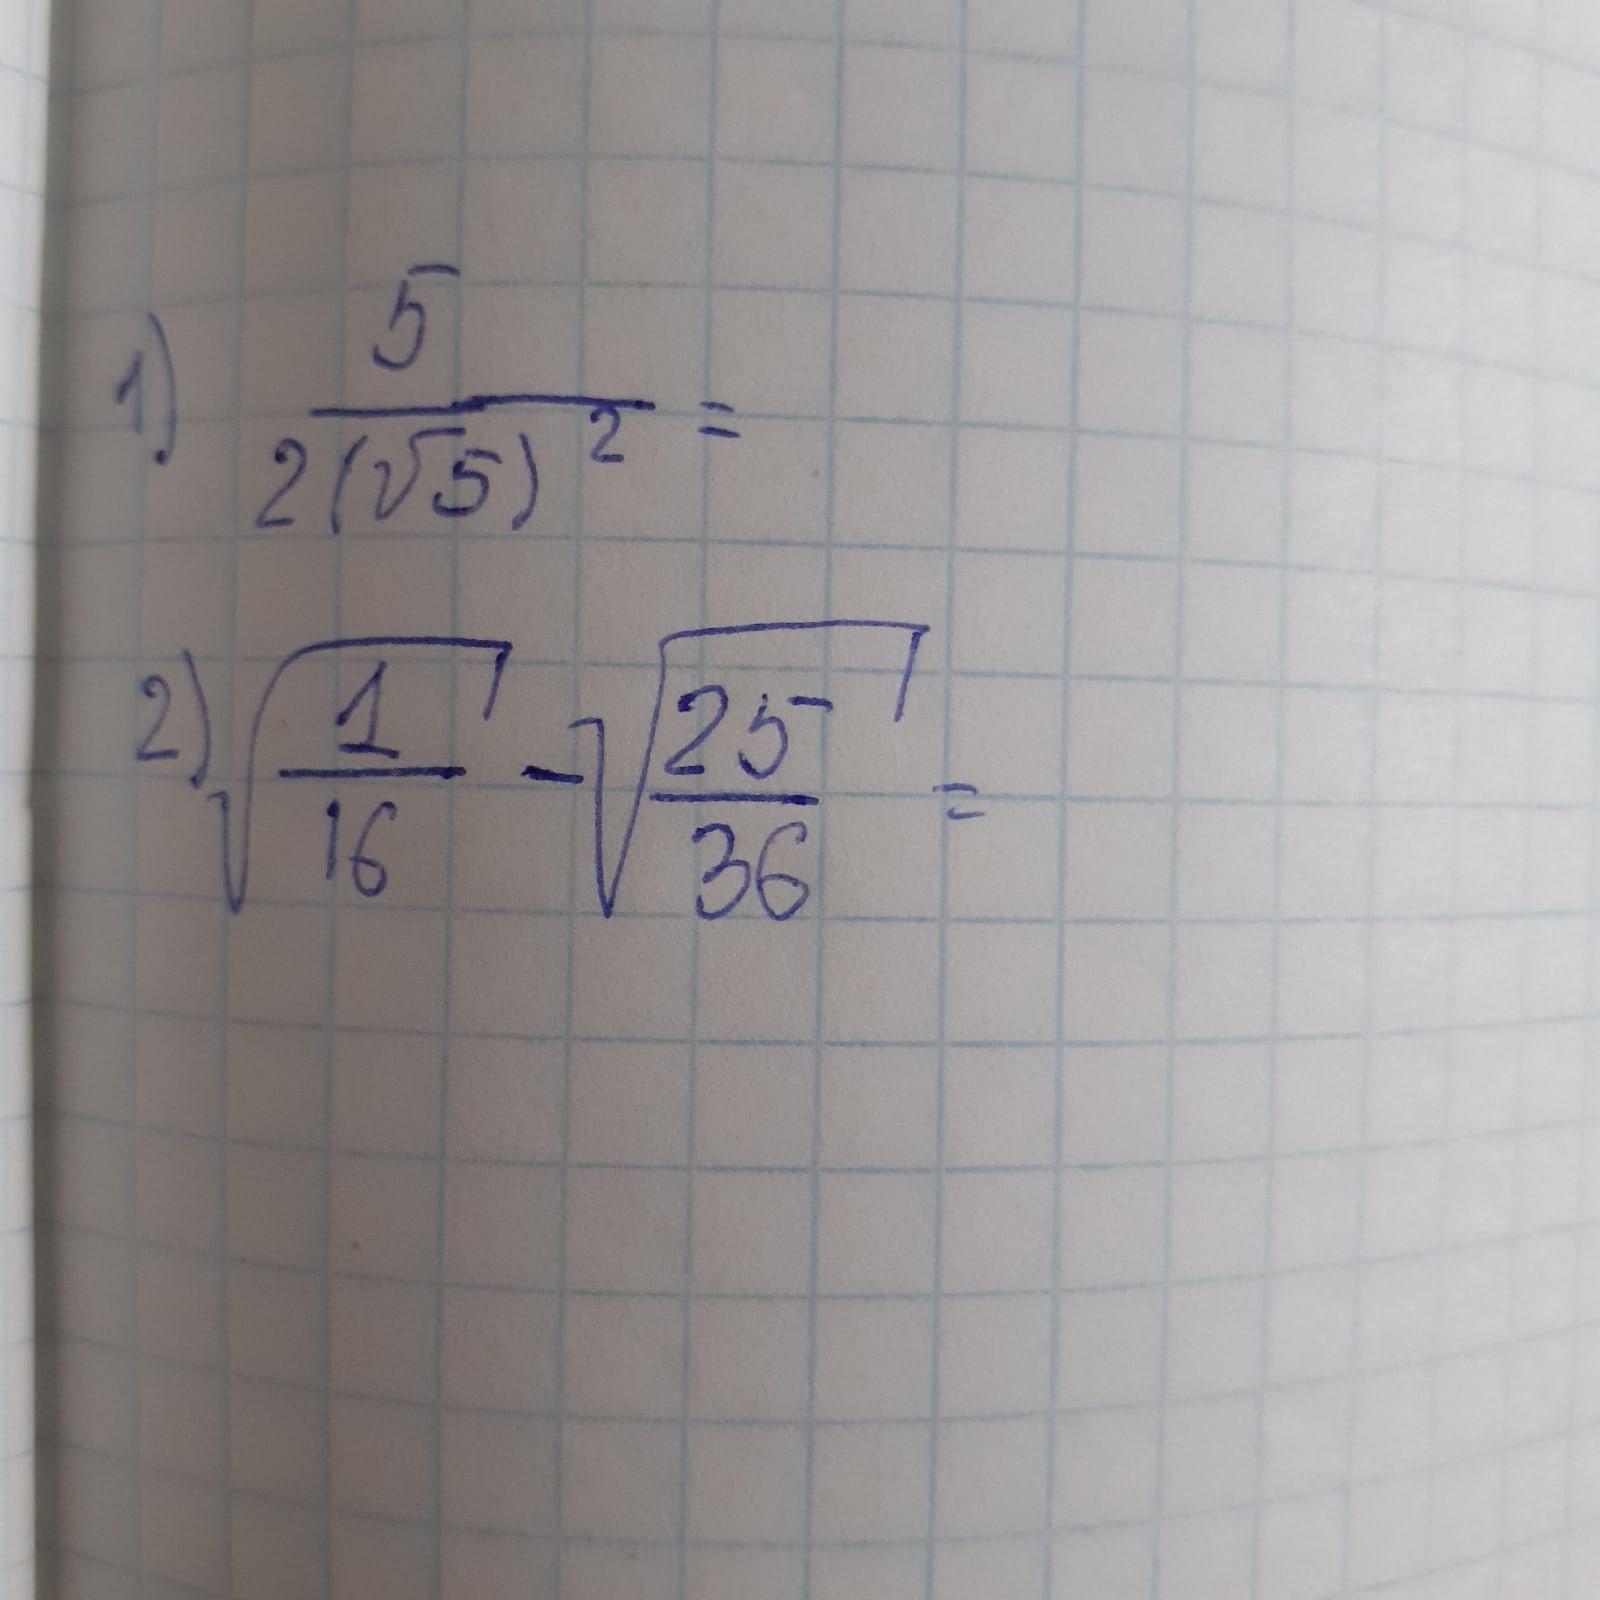 1) 5/(2(√5)²) =
2) √(1/16) - √(25/36) =